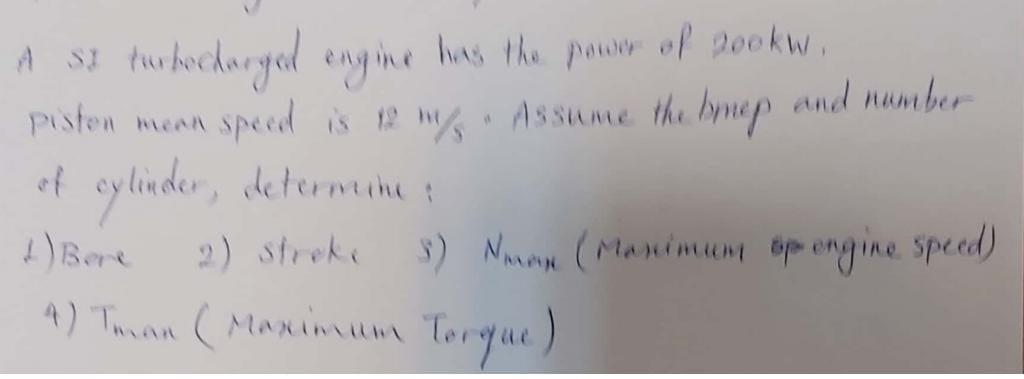 A SI turbocharged engine has the power of 200kW.
piston mean speed is 12 m/s. Assume the bmep and number
of cylinder, determine:
1) Bore 2) Stroke 3) Nmax (Maximum engine speed)
4) Tmax (Maximum Torque)